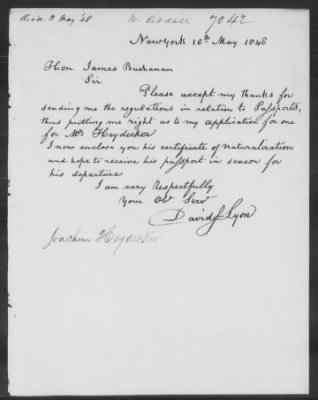 Recd 11 May '48
7042
New York 10th May 1848
Hon James Buchanan
Sir
Please accept my thanks for
sending me the regulations in relation to Passports,
thus putting me right as to my application for one
for Mr Heydecker
I now enclose you his certificate of naturalization
and hope to receive his passport in season for
his departure
I am very Respectfully
Your Obt Servt
David J Lyon
Joachim Heydecker